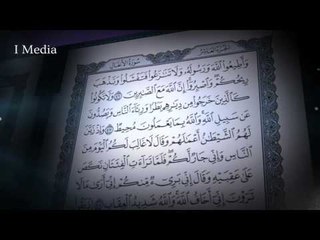 I Media
سُورَةُ الأَنفَالِ
وَأَطِيعُوا۟ ٱللَّهَ وَرَسُولَهُۥ وَلَا تَنَٰزَعُوا۟ فَتَفْشَلُوا۟ وَتَذْهَبَ
رِيحُكُمْ ۖ وَٱصْبِرُوٓا۟ ۚ إِنَّ ٱللَّهَ مَعَ ٱلصَّٰبِرِينَ ۝ وَلَا تَكُونُوا۟
كَٱلَّذِينَ خَرَجُوا۟ مِن دِيَٰرِهِم بَطَرًا وَرِئَآءَ ٱلنَّاسِ وَيَصُدُّونَ
عَن سَبِيلِ ٱللَّهِ ۚ وَٱللَّهُ بِمَا يَعْمَلُونَ مُحِيطٌ ۝ وَإِذْ زَيَّنَ
لَهُمُ ٱلشَّيْطَٰنُ أَعْمَٰلَهُمْ وَقَالَ لَا غَالِبَ لَكُمُ ٱلْيَوْمَ مِنَ
ٱلنَّاسِ وَإِنِّى جَارٌ لَّكُمْ ۖ فَلَمَّا تَرَآءَتِ ٱلْفِئَتَانِ نَكَصَ
عَلَىٰ عَقِبَيْهِ وَقَالَ إِنِّى بَرِىٓءٌ مِّنكُمْ إِنِّىٓ أَرَىٰ مَا لَا
تَرَوْنَ إِنِّىٓ أَخَافُ ٱللَّهَ ۚ وَٱللَّهُ شَدِيدُ ٱلْعِقَابِ